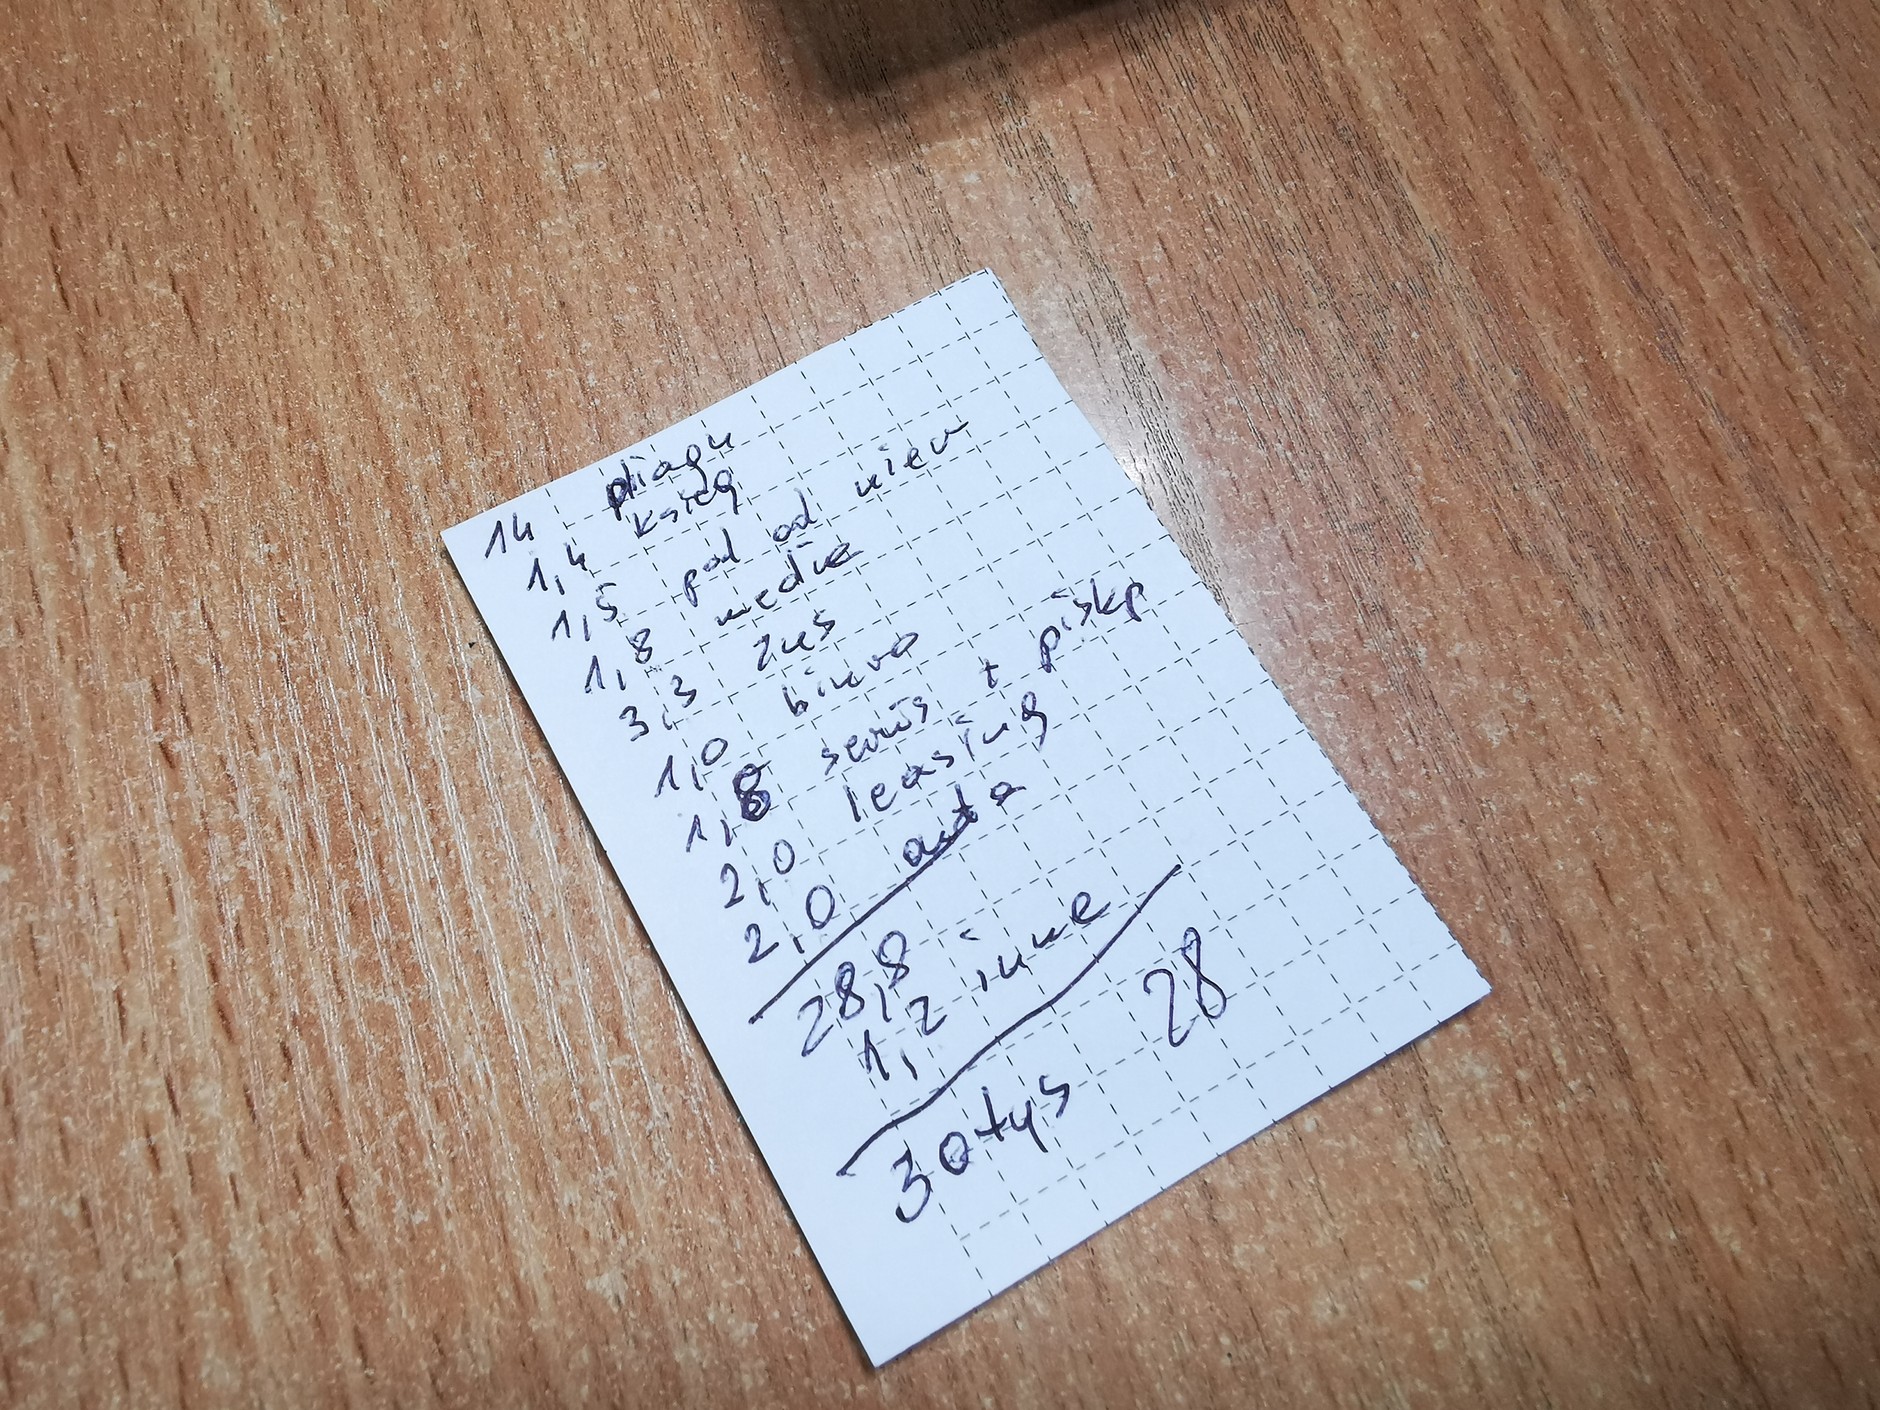 14
1,4 księg
1,5 pod od nier
1,8 media
3,3 zus
1,0 biuro
1,8 serwis +
2,0 leasing
2,0 auta
28,8
1,2 inne
30 tys 28